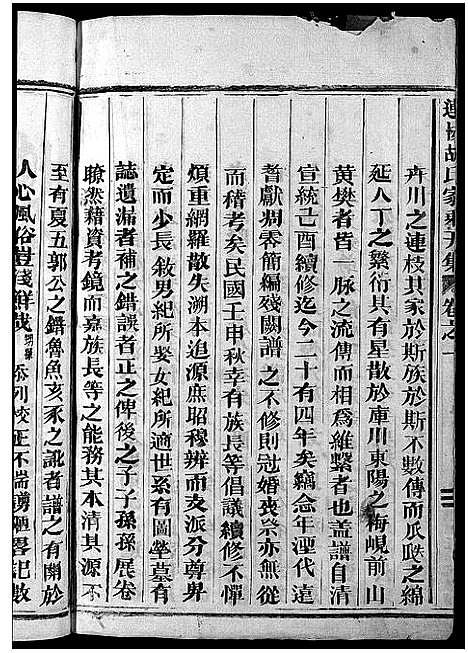 蓮塘胡氏家乘天集 卷之一
卉川之連枝其家於斯族於斯不數傳而瓜瓞之綿
延人丁之繁衍其有星散於庫川東陽之梅峴前山
黄樊者皆一脉之流傳而相爲維繫者也盖譜自清
宣統己酉續修迄今二十有四年矣竊念年湮代遠
耆獻凋零簡編殘闕譜之不修則冠婚喪祭亦無從
而稽考矣民國壬申秋幸有族長等倡議續修不憚
煩重網羅散失溯本追源庶昭穆辨而支派分尊卑
定而少長敘男紀所娶女紀所適世系有圖塋墓有
誌遺漏者補之錯誤者正之俾後之子子孫孫展卷
瞭然藉資考鏡而嘉族長等之能務其本清其源不
至有夏五郭公之錯魯魚亥豕之訛者譜之有關於
人心風俗豈淺鮮哉 忝列校正不揣謭陋畧記數